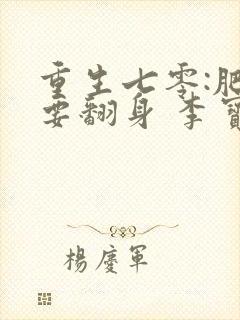 重生七零:肥
要翻身 李寶
楊慶軍